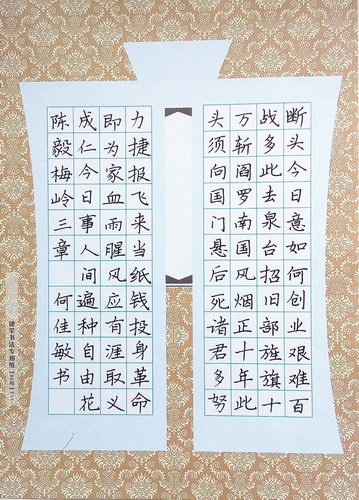 断头今日意如何创业艰难百
战多此去泉台招旧部旌旗十
万斩阎罗南国风烟正十年此
头须向国门悬后死诸君多努
力捷报飞来当纸钱投身革命
即为家血雨腥风应有涯取义
成仁今日事人间遍种自由花
陈毅梅岭三章 何佳敏书
硬笔书法专用纸